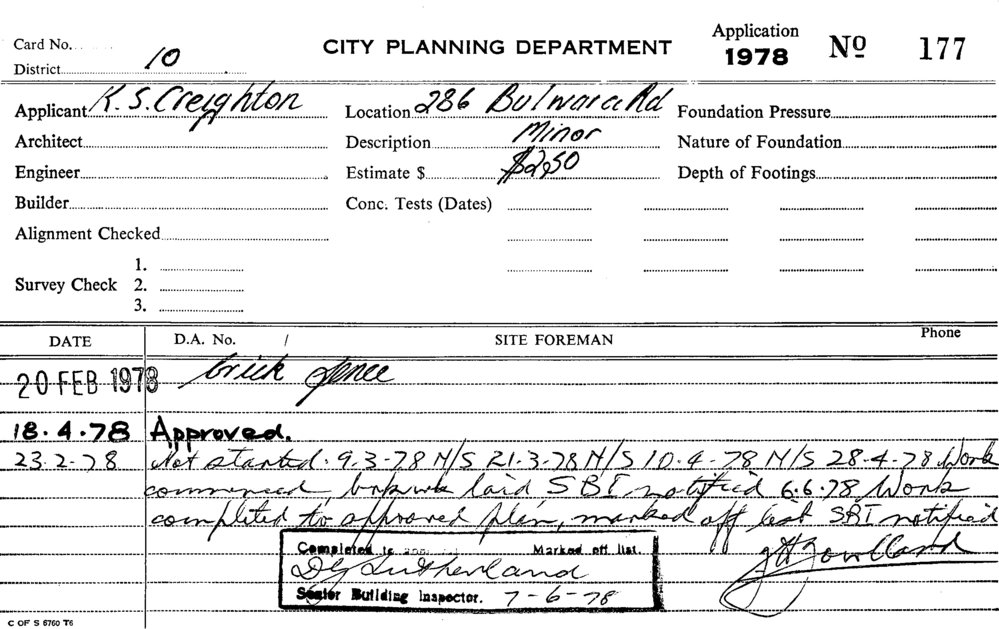 Card No.
CITY PLANNING DEPARTMENT
Application
1978
Nº 177
District 10
Applicant K. S. Creighton
Location 286 Bulwara Rd
Foundation Pressure
Architect
Description Minor
Nature of Foundation
Engineer
Estimate $ $250
Depth of Footings
Builder
Conc. Tests (Dates)
Alignment Checked
1.
Survey Check 2.
3.
DATE
D.A. No. /
SITE FOREMAN
Phone
20 FEB 1978 brick fence
18.4.78 Approved.
23.2.78 Not started. 9.3.78 N/S 21.3.78 N/S 10.4.78 N/S 28.4.78 Work
commenced, laid SBI notified 6.6.78 Work
completed to approved plan, marked off list SBI notified
Completed to Marked off list.
Sutherland
Senior Building Inspector. 7-6-78
C OF S 6760 T6